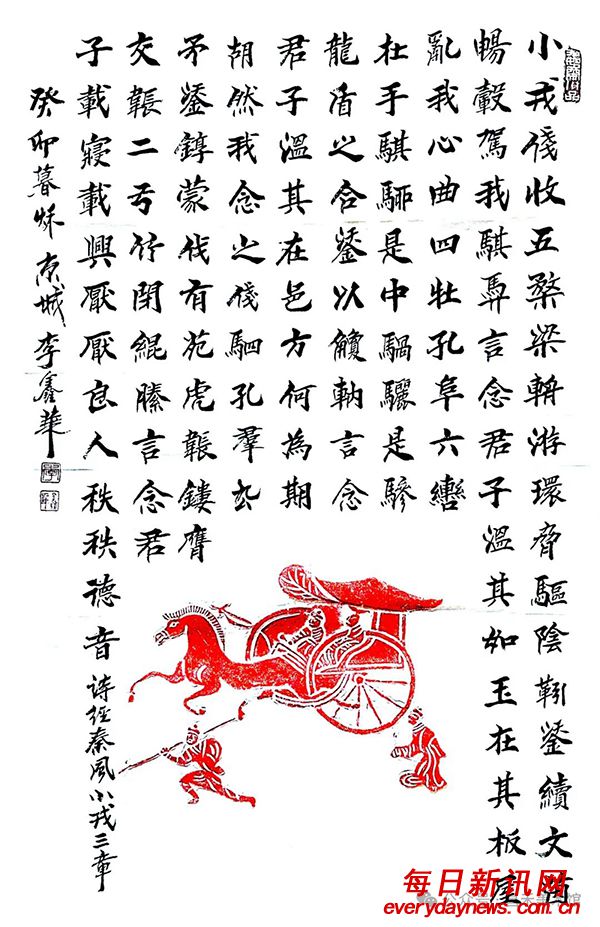 小戎俴收五楘梁輈游環脅驅陰靷鋈續文茵
暢轂駕我騏馵言念君子溫其如玉在其板屋
亂我心曲四牡孔阜六轡
在手騏駵是中騧驪是驂
龍盾之合鋈以觼軜言念
君子溫其在邑方何為期
胡然我念之俴駟孔羣厹
矛鋈錞蒙伐有苑虎韔鏤膺
交韔二弓竹閉緄縢言念君
子載寢載興厭厭良人秩秩德音
詩經秦風小戎三章
癸卯暮秋京城李鑫華
每日新讯网
everydaynews.com.cn
公众号